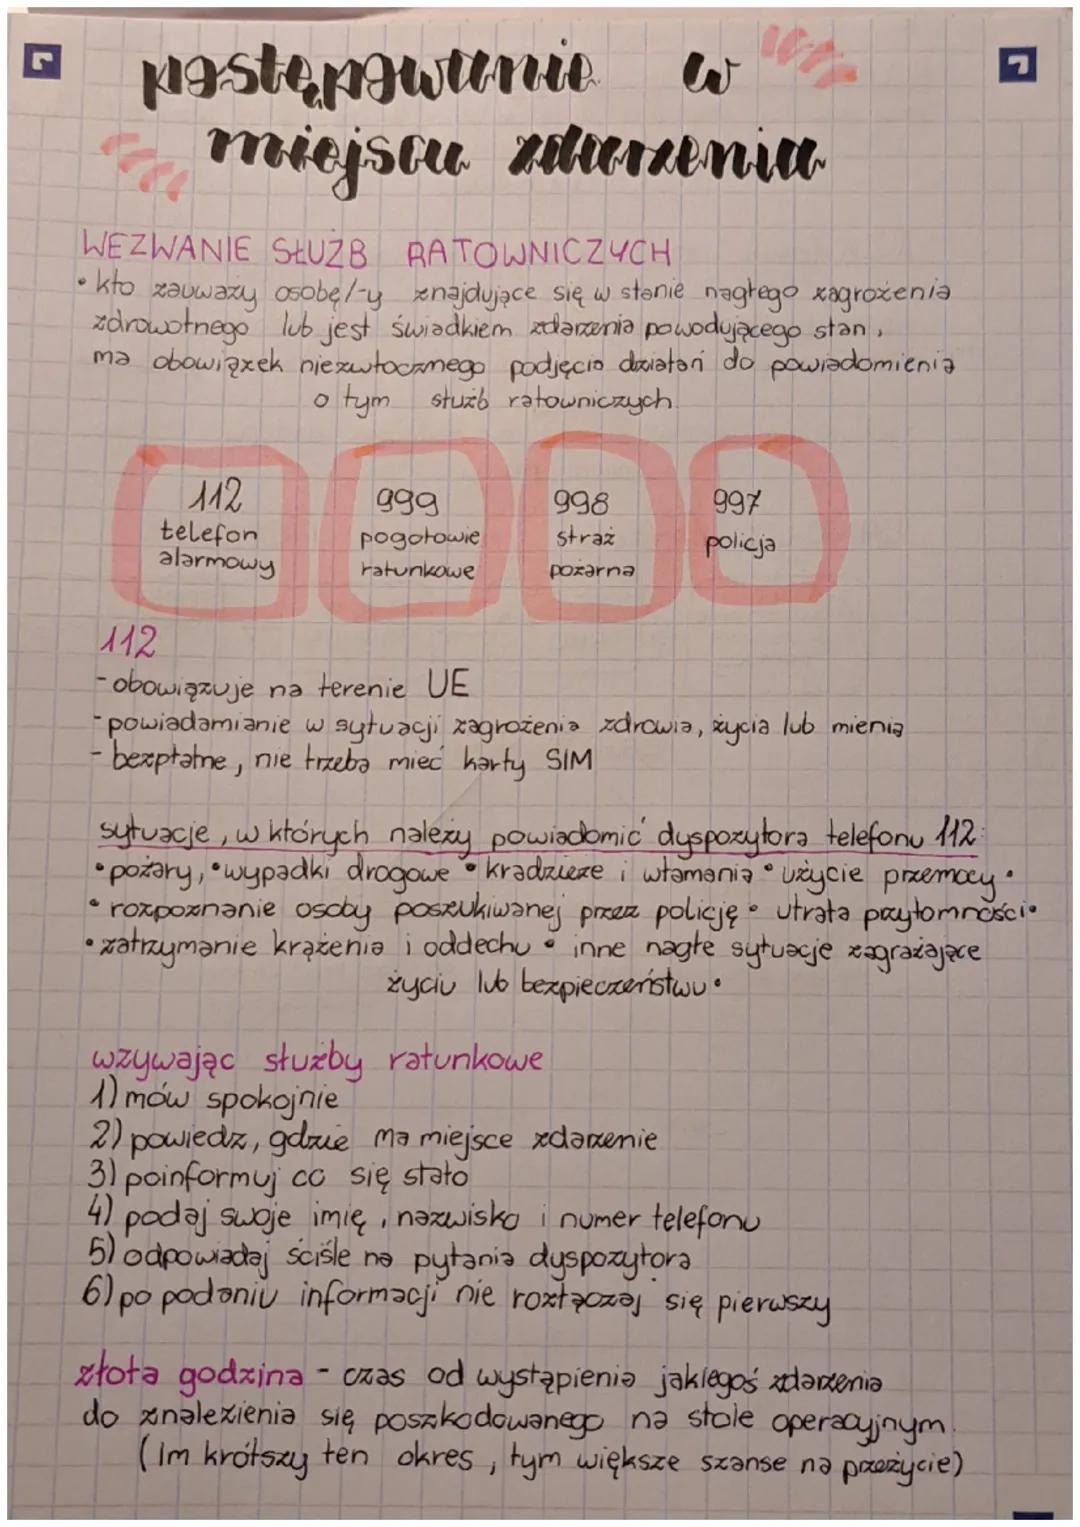 postępowanie w
miejscu zdarzenia
WEZWANIE SŁUŻB RATOWNICZYCH
• kto zauważy osobę/-y znajdujące się w stanie nagłego zagrożenia
zdrowotnego lub jest świadkiem zdarzenia powodującego stan,
ma obowiązek niezwłocznego podjęcia działań do powiadomienia
o tym służb ratowniczych.
112 999 998 997
telefon pogotowie straż policja
alarmowy ratunkowe pożarna
112
- obowiązuje na terenie UE
- powiadamianie w sytuacji zagrożenia zdrowia, życia lub mienia
- bezpłatne, nie trzeba mieć karty SIM
sytuacje, w których należy powiadomić dyspozytora telefonu 112:
• pożary, • wypadki drogowe • kradzieże i włamania • użycie przemocy •
• rozpoznanie osoby poszukiwanej przez policję • utrata przytomności •
• zatrzymanie krążenia i oddechu • inne nagłe sytuacje zagrażające
życiu lub bezpieczeństwu •
wzywając służby ratunkowe
1) mów spokojnie
2) powiedz, gdzie ma miejsce zdarzenie
3) poinformuj co się stało
4) podaj swoje imię, nazwisko i numer telefonu
5) odpowiadaj ściśle na pytania dyspozytora
6) po podaniu informacji nie rozłączaj się pierwszy
złota godzina - czas od wystąpienia jakiegoś zdarzenia
do znalezienia się poszkodowanego na stole operacyjnym.
(Im krótszy ten okres, tym większe szanse na przeżycie)